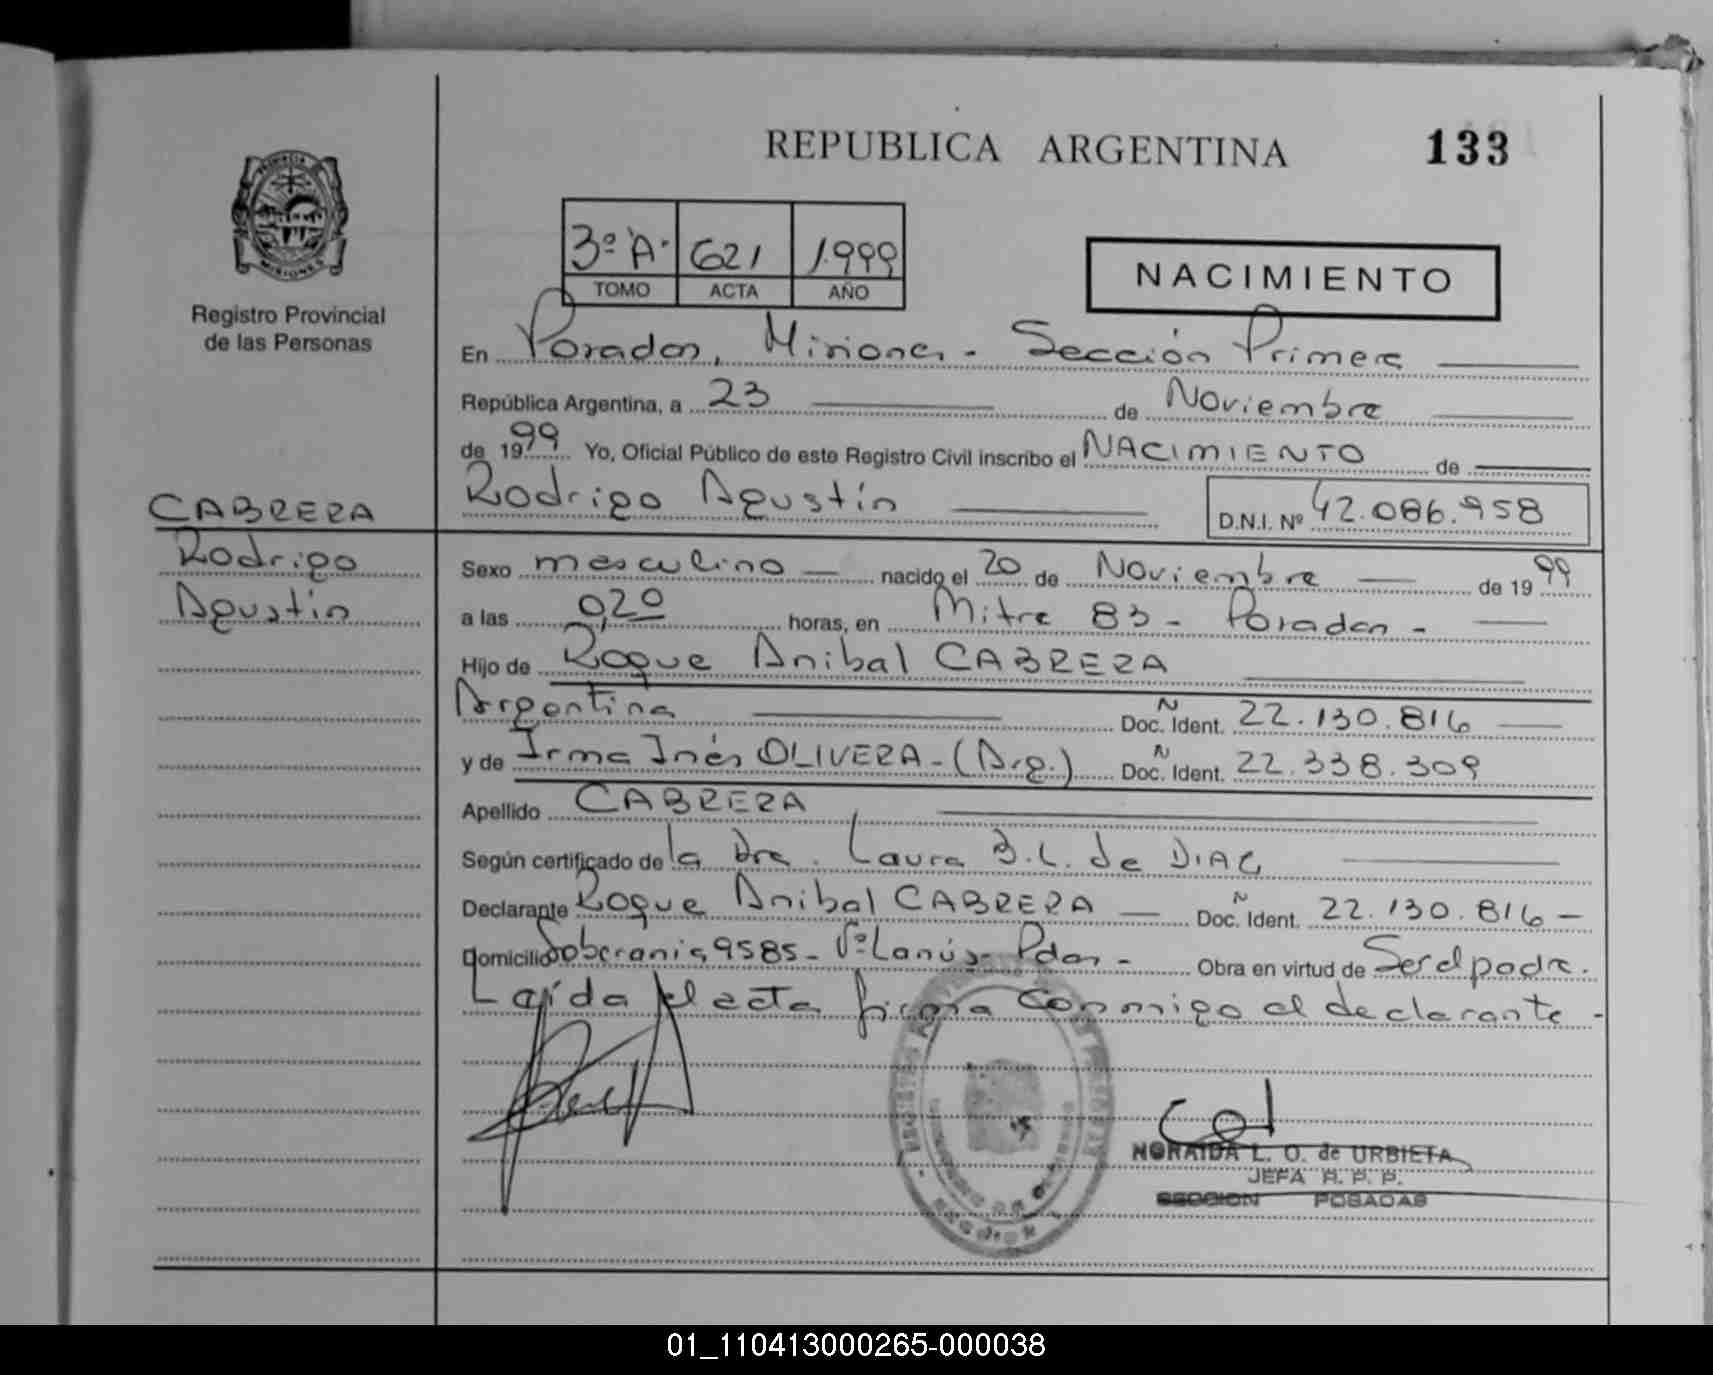 REPUBLICA ARGENTINA 133
3º "A" 621 1.999
TOMO ACTA AÑO
NACIMIENTO
MISIONES
Registro Provincial
de las Personas
En Posadas, Misiones - Sección Primera
República Argentina, a 23 de Noviembre
de 1999 Yo, Oficial Público de este Registro Civil inscribo el NACIMIENTO de
Rodrigo Agustín D.N.I. Nº 42.086.958
CABRERA
Rodrigo
Agustín
Sexo masculino nacido el 20 de Noviembre de 1999
a las 0,20 horas, en Mitre 83 - Posadas -
Hijo de Roque Anibal CABRERA
Argentina Doc. Ident. Ñ 22.130.816
y de Irma Inés OLIVERA - (Arg.) Doc. Ident. Ñ 22.338.309
Apellido CABRERA
Según certificado de la Dra. Laura B.L. de DIAZ
Declarante Roque Anibal CABRERA Doc. Ident. Ñ 22.130.816 -
Domicilio Soberania 9585 - Vº Lanús - Pdas - Obra en virtud de Ser el padre.
Leída el acta firma conmigo el declarante -
NORAIDA L. O. de URBIETA
JEFA R. P. P.
SECCION POSADAS
01_110413000265-000038